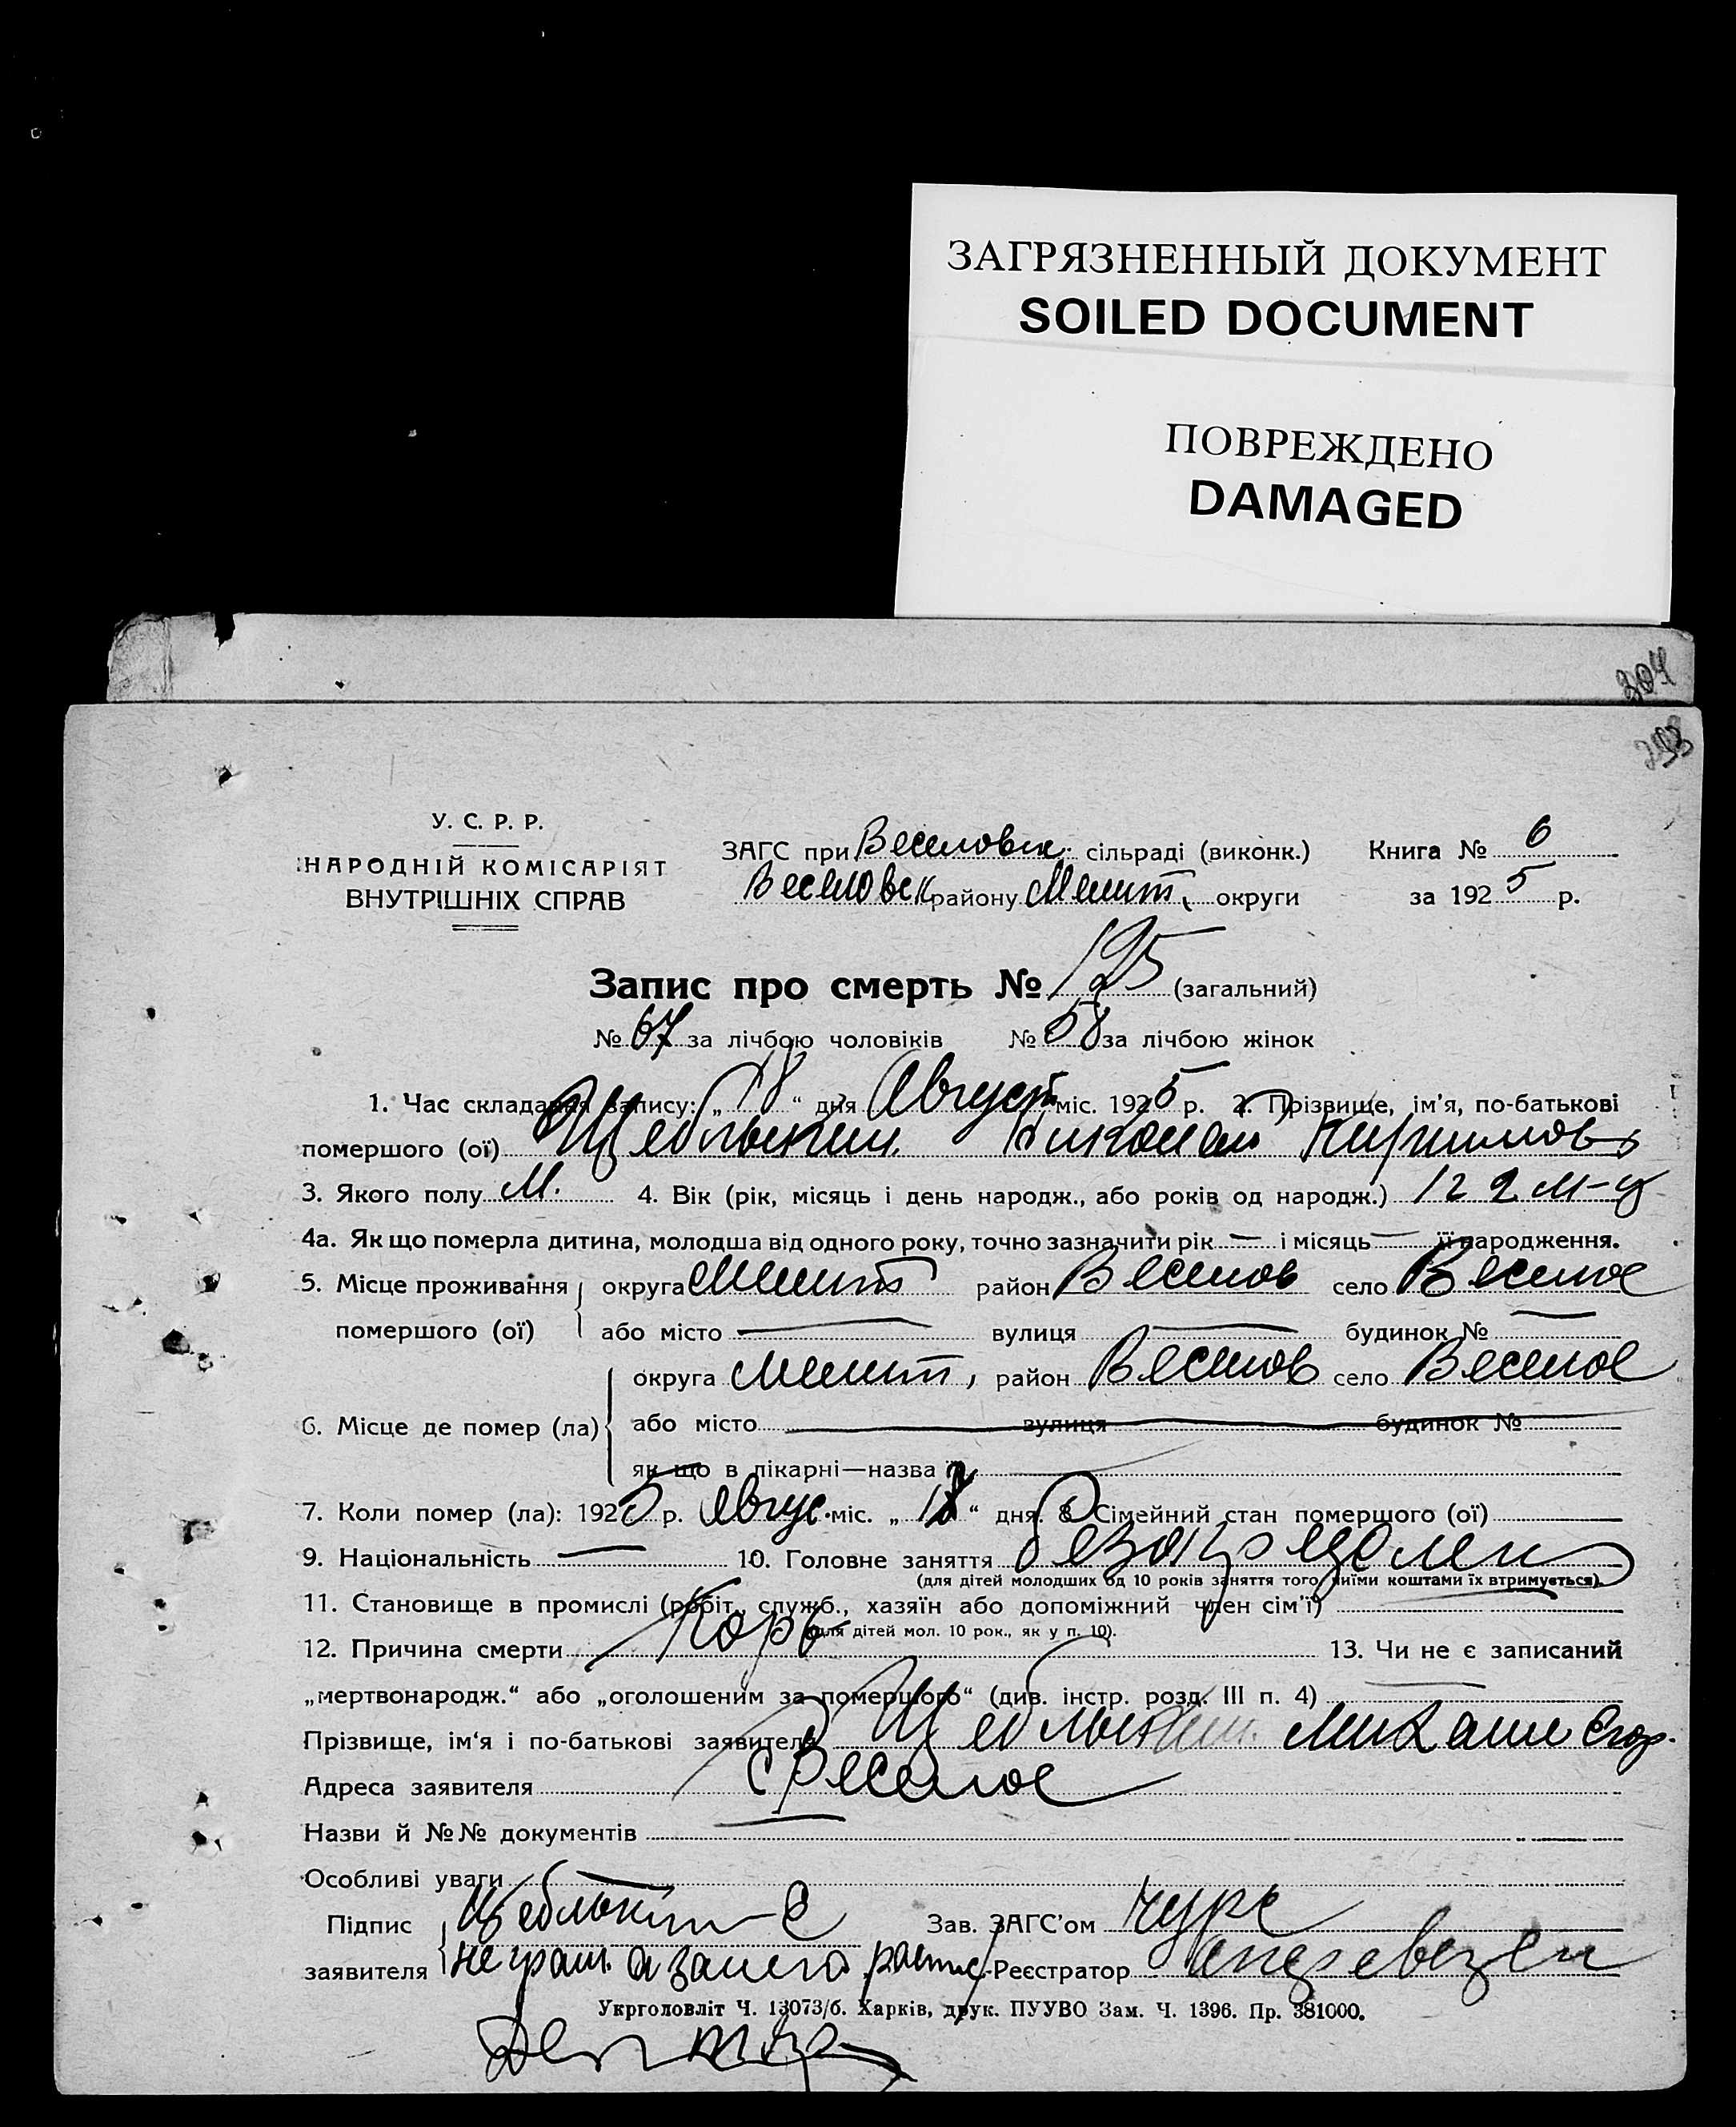 ЗАГРЯЗНЕННЫЙ ДОКУМЕНТ
SOILED DOCUMENT
ПОВРЕЖДЕНО
DAMAGED
304
У. С. Р. Р.
НАРОДНІЙ КОМІСАРІЯТ
ВНУТРІШНІХ СПРАВ
ЗАГС при Веселовск. сільраді (виконк.) Книга № 6
Веселовск району Мелит. округи за 1925 р.
Запис про смерть № 125 (загальний)
№ 67 за лічбою чоловіків № 58 за лічбою жінок
1. Час складання запису: „18“ дня Август міс. 1925 р. 2. Прізвище, ім’я, по-батькові
помершого (ої) Щеблыкин Николай
3. Якого полу М. 4. Вік (рік, місяць і день народж., або років од народж.) 1 г 2 м-ц
4а. Як що померла дитина, молодша від одного року, точно зазначити рік — і місяць — її народження.
5. Місце проживання округа Мелит район Веселов село Веселое
помершого (ої) або місто — вулиця — будинок № —
округа Мелит, район Веселов село Веселое
6. Місце де помер (ла) або місто вулиця будинок №
як що в лікарні—назва її
7. Коли помер (ла): 1925 р. Авгус. міс. „18“ дня. 8. Сімейний стан помершого (ої)
9. Національність — 10. Головне заняття
(для дітей молодших од 10 років заняття того, чиїми коштами їх втримується).
11. Становище в промислі (робіт., служб., хазяїн або допоміжний член сім’ї)
(для дітей мол. 10 рок., як у п. 10).
12. Причина смерти Корь 13. Чи не є записаний
„мертвонародж.“ або „оголошеним за помершого“ (див. інстр. розд. III п. 4) —
Прізвище, ім‘я і по-батькові заявителя Щеблыкин Егор.
Адреса заявителя с Веселое
Назви й №№ документів —
Особливі уваги —
Підпис Щеблыкин Зав. ЗАГС’ом
заявителя неграм. а за него распис. Реєстратор
Укрголовліт Ч. 13073/б. Харків, друк. ПУУВО Зам. Ч. 1396. Пр. 381000.